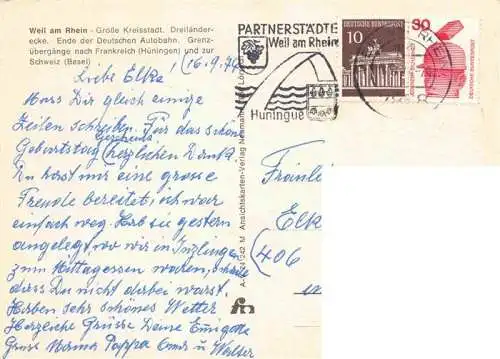 Weil am Rhein - Große Kreisstadt. Dreiländer-
ecke. Ende der Deutschen Autobahn. Grenz-
übergänge nach Frankreich (Hüningen) und zur
Schweiz (Basel)
PARTNERSTÄDTE
Weil am Rhein
Huningue
10
DEUTSCHE BUNDESPOST
30
DEUTSCHE BUNDESPOST
Liebe Elke! 16.9.74
Muss Dir gleich einige
Zeilen schreiben. Für das schöne
Geburtstag Geschenk herzlichen Dank.
Du hast mir eine grosse
Freude bereitet, ich war
einfach weg. Hab sie gestern
angelegt, wo wir in Inzlingen
zum Mittagessen waren, schade
dass Du nicht dabei warst.
Haben sehr schönes Wetter
Herzliche Grüsse Deine
Grüsse Mama Pappa Oma u Walter
Ansichtskarten-Verlag
Fräulein
Elke
406